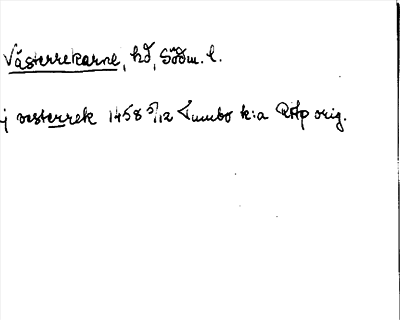 Västerrekarne, hd, Södm. l.
j vesterrek 1458 5/12 Tumbo k:a RAp orig.